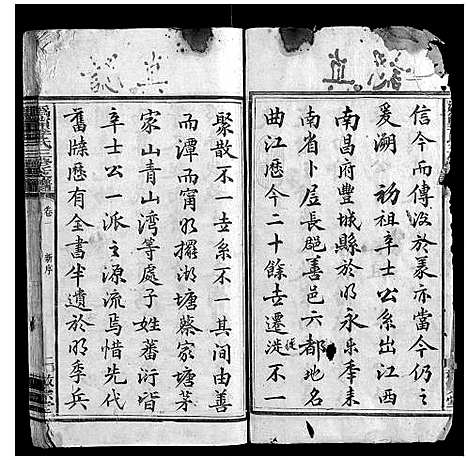 信今而傳後於是亦當今仍之
爰溯 初祖辛士公系出江西
南昌府豐城縣於明永樂季來
南省卜居長邑善邑六都地名
曲江歷今二十餘世遷徙不一
聚散不一世系不一其間由善
而潭而甯明羅湖塘蔡家塘茅
家山青山湾等處子姓蕃衍皆
辛士公一派之源流焉惜先代
舊牒歷有全書半遺於明季兵
氏三修宅譜
卷
新序